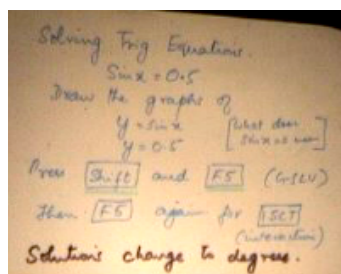 Solving Trig Equations.
Sin x = 0.5
Draw the graphs of
y = sin x [What does
y = 0.5 sin x = 0.5 mean]
Press Shift and F5 (G-SLV)
Then F5 again for ISCT
(intersection)
Solutions change to degrees.